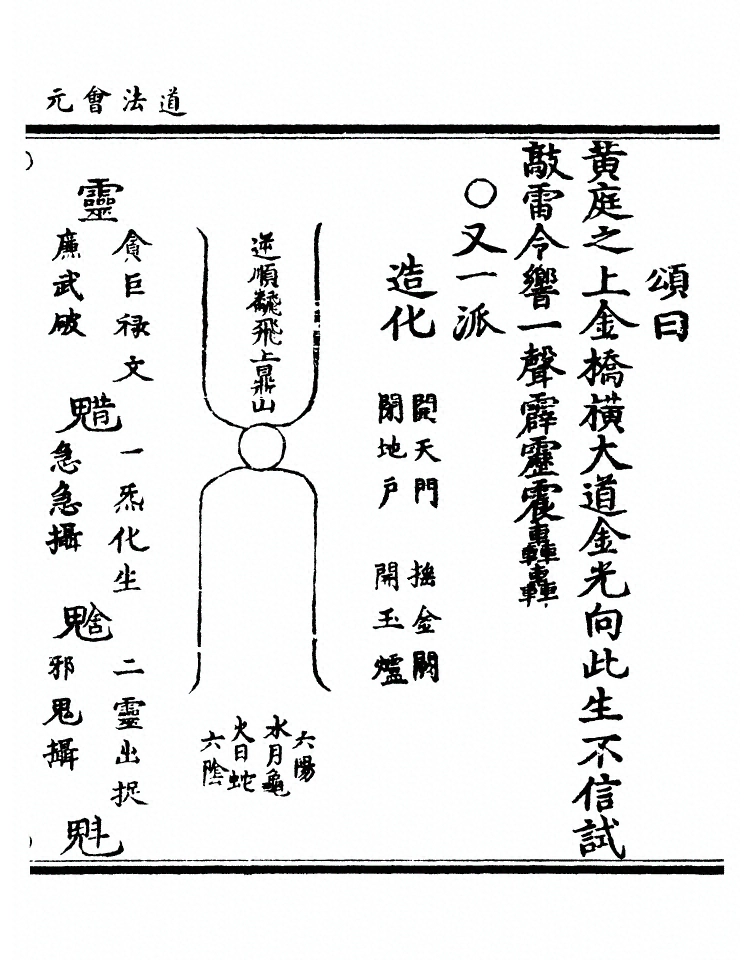 道法會元
頌曰
黄庭之上金橋橫大道金光向此生不信試
敲雷令響一聲霹靂震轟轟
○又一派
造化
開天門
閉地戶
搖金闕
開玉爐
逆順飛上山
六陽
水月龜
火日蛇
六陰
靈
貪巨禄文
廉武破
䰢
一炁化生
急急攝
二靈出捉
邪鬼攝
魁